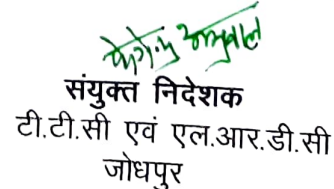 संयुक्त निदेशक
टी.टी.सी एवं एल.आर.डी.सी
जोधपुर